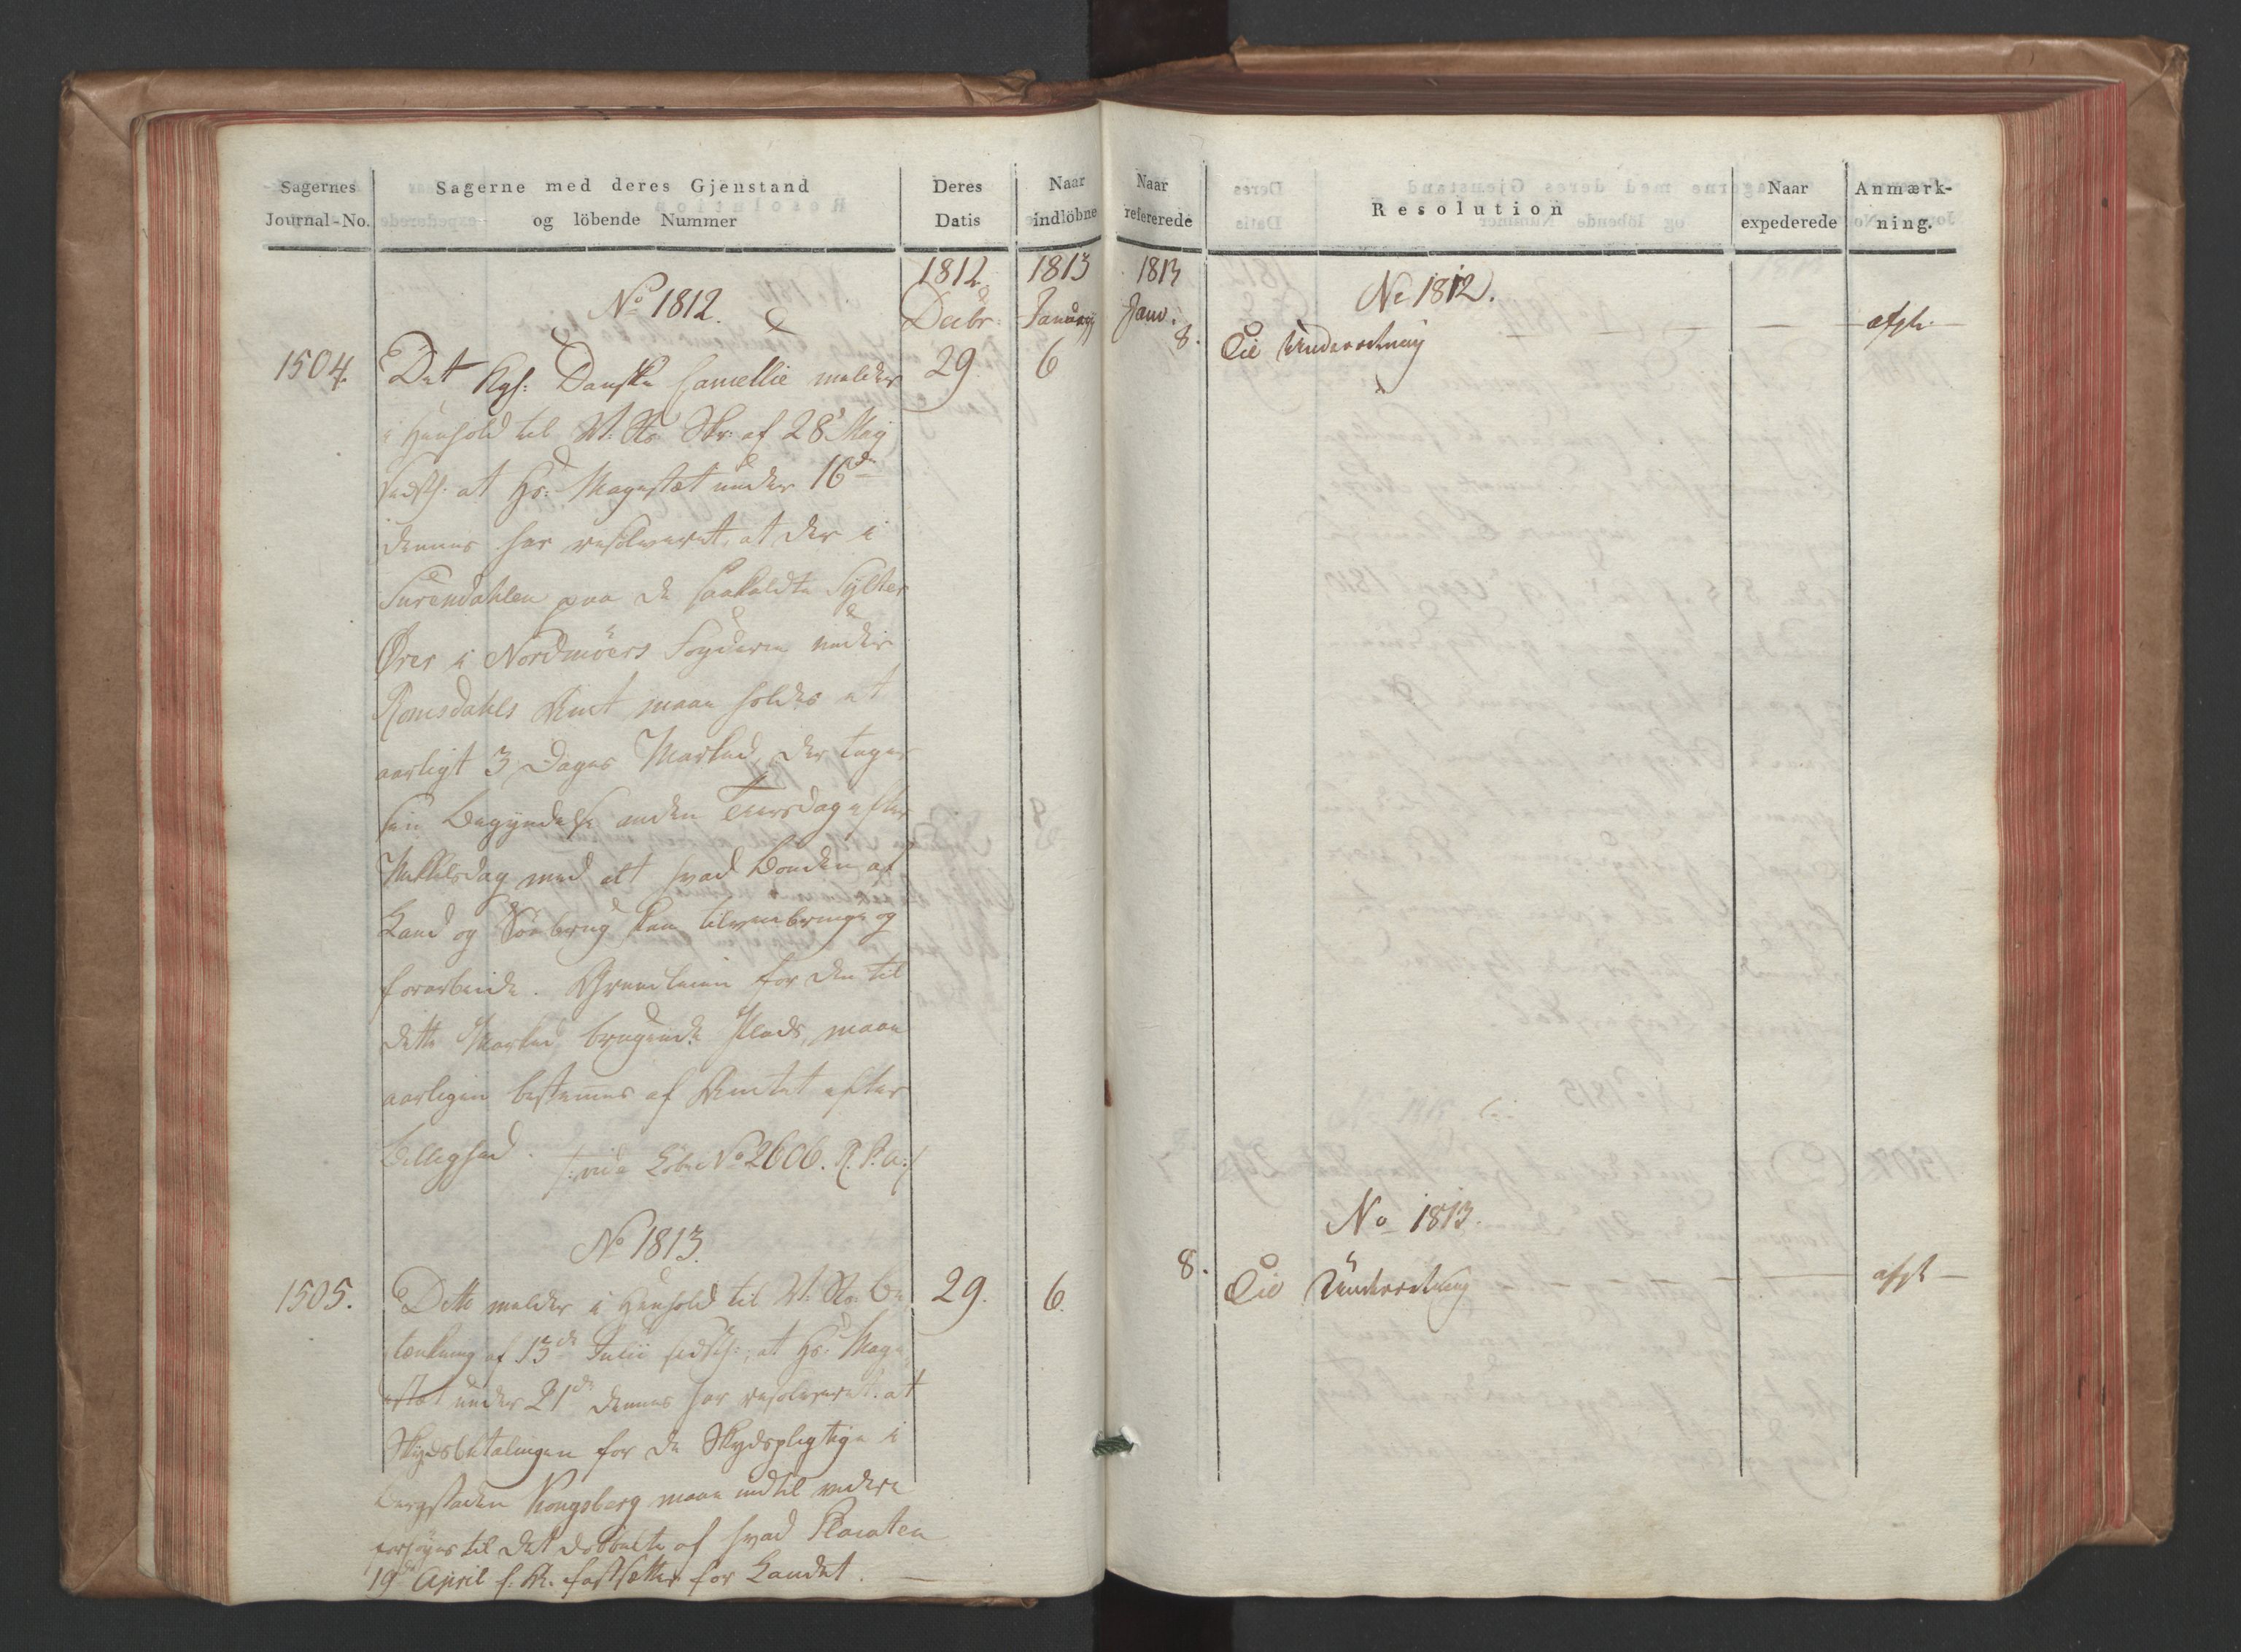 Sagernes
Journal-No.
Sagerne med deres Gjenstand
og löbende Nummer
Deres
Datis
Naar
indlöbne
1812.
Decbr.
1813
Januarij
No 1812.
1504. Det Kgl: Danske Cancellie melder 29 6
i Henhold til Skr: af 28 Maj
sidstl: at Hs: Majestæt under 16de
dennes har resolveret, at der i
Surendahlen paa de saakaldte Sylthe
Örer i Nordmöers Fogderie under
Romsdahls Amt maae holdes et
aarligt 3 Dages Marked, der tager
sin Begyndelse anden Tiirsdag efter
Mikkelsdag med alt hvad Bonden af
Land og Söe brug kan tilveiebringe og
forarbeide. Grundleien for den til
dette Marked brugende Plads, maae
aarligen bestemmes af Amtet efter
Billighed. /: vide Löbe No 2606. R. P. a:/
No 1813.
1505. Dette melder i Henhold til Be 29. 6.
tænkning af 13de Julii sidstl:, at Hs: Maje
stæt under 21de dennes har resolveret: at
Skydsbetalingen for de Skydspligtige i
Bergstaden Kongsberg maae indtil videre
forhöyes til det dobbelte af hvad Placaten
19de April f. A. fastsætter for Landet. —
Naar
refererede
Resolution
Naar
expederede
Anmærk-
ning.
1813
Janv.
No 1812.
8. Til Underretning — — — — afgl. —
No 1813.
8. Til Underretning — — — — afgl —